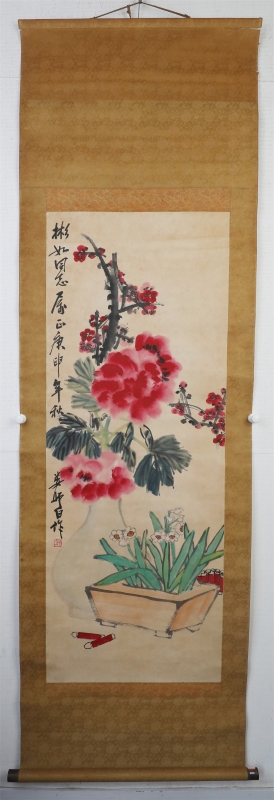 彬如同志属正庚申年秋
娄师白作